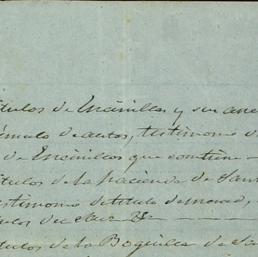 tulos de Encinillas y sus ane
úmulo de autos, testimonio d
de Encinillas que contiene
tulos de la hacienda de San
stimonio de titulo de merced,
tulos de
tulos de la Boquilla de Sa